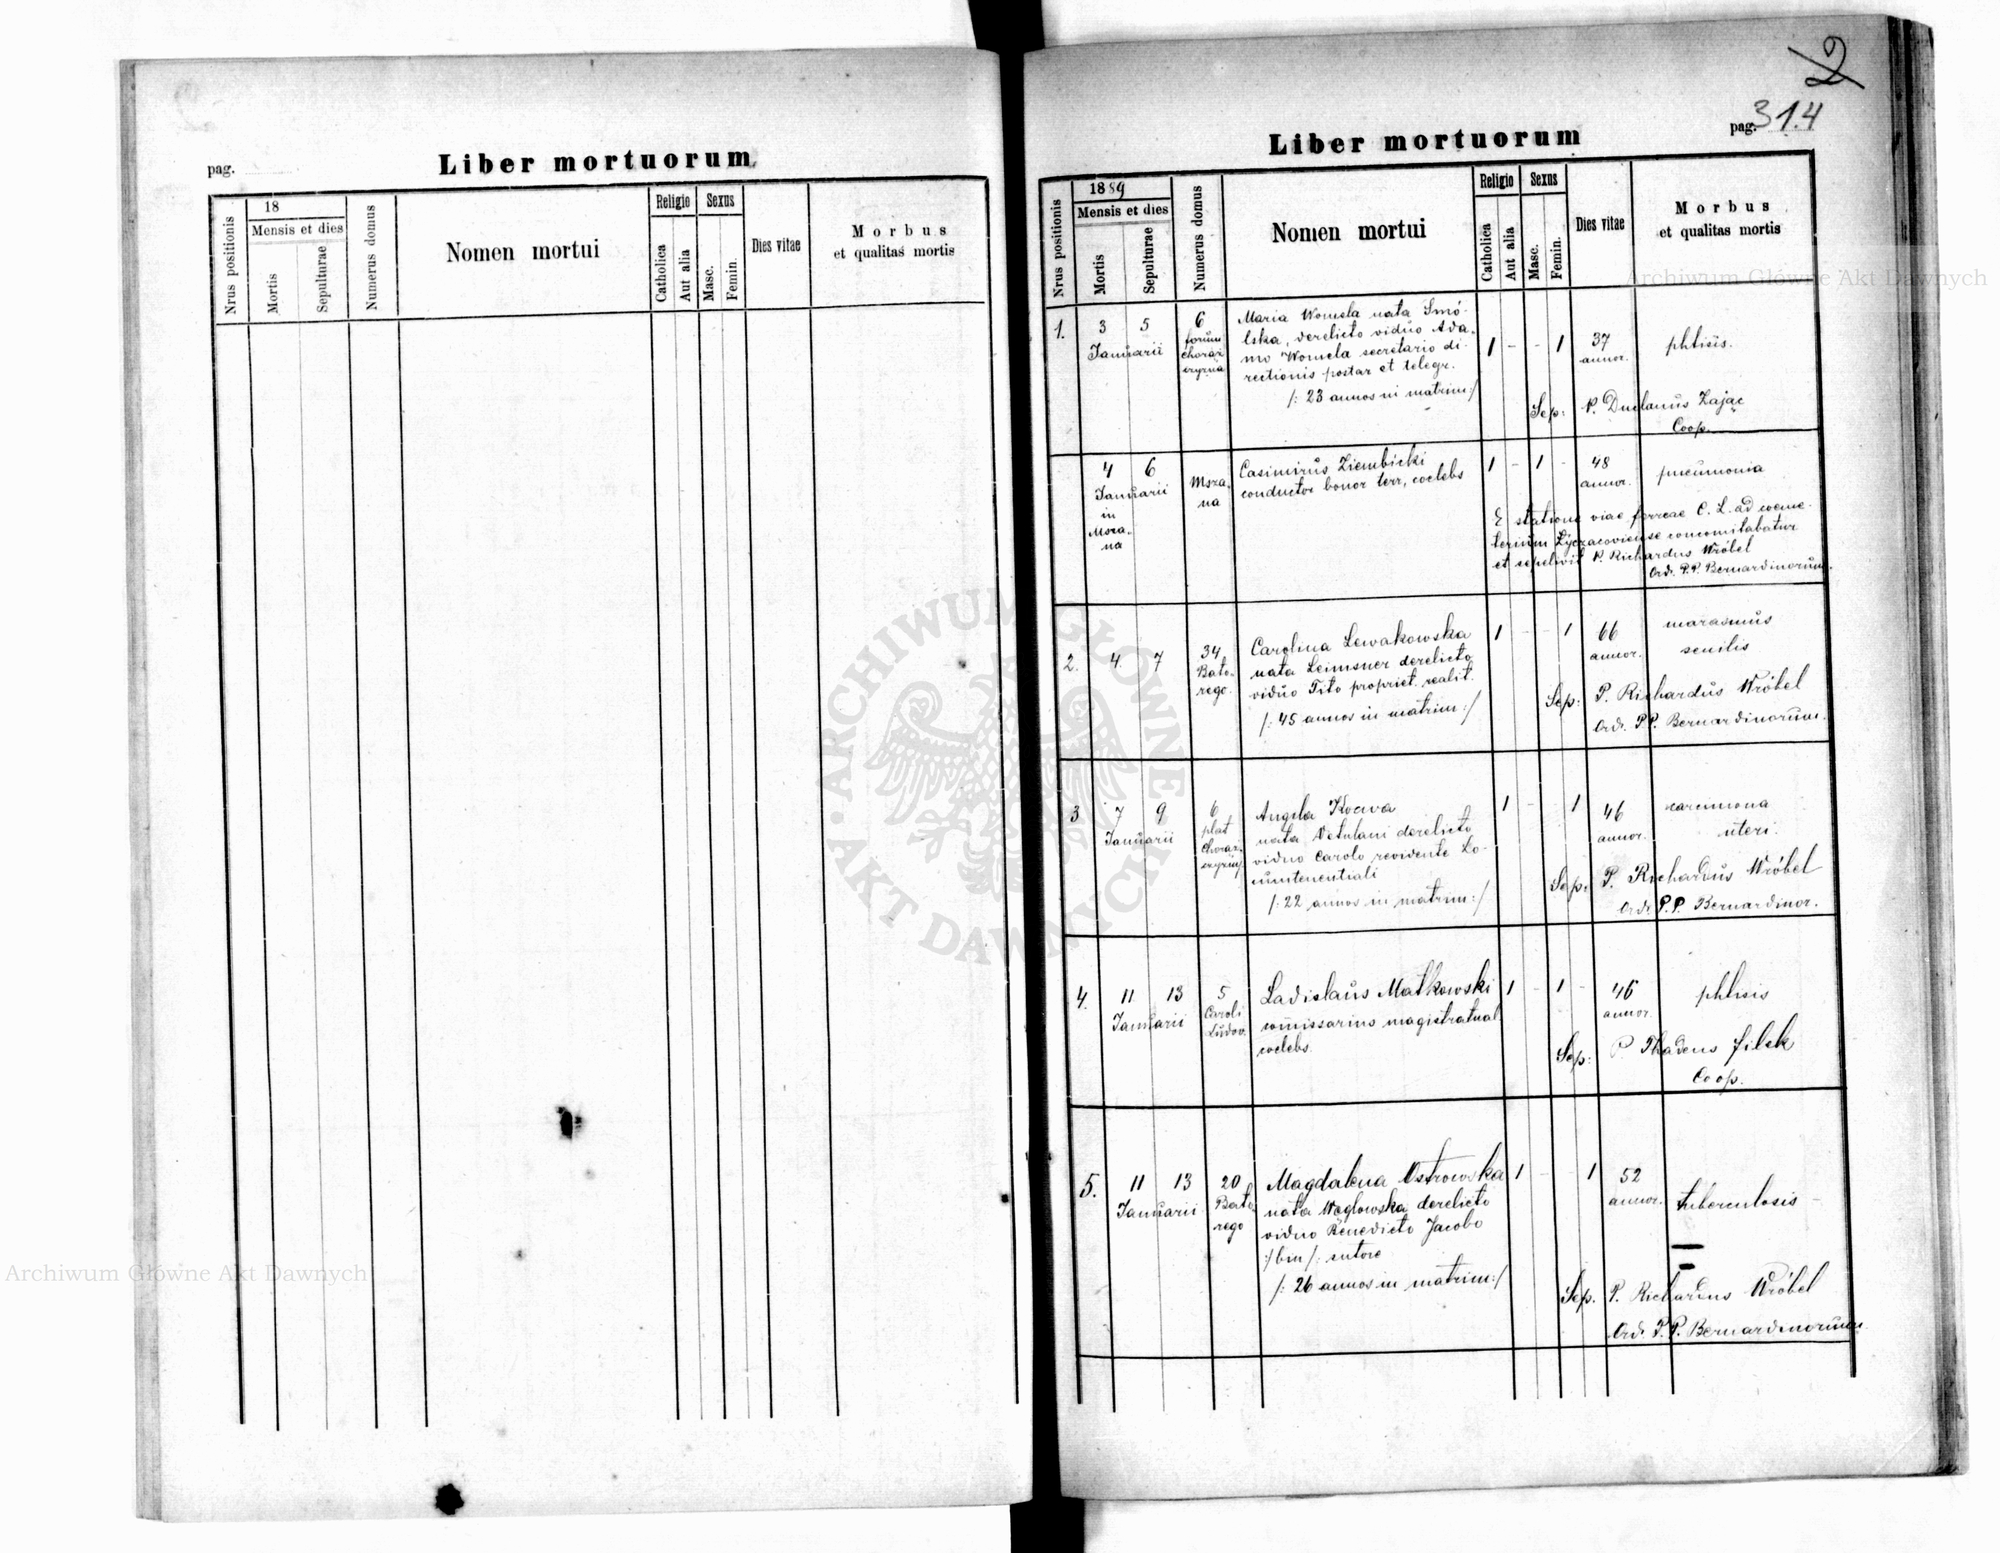 pag.
Liber mortuorum
Nrus positionis
18
Mensis et dies
Mortis
Sepulturae
Numerus domus
Nomen mortui
Religio
Catholica
Aut alia
Sexus
Masc.
Femin.
Dies vitae
Morbus
et qualitas mortis
2
pag. 314
Liber mortuorum
Nrus positionis
1889
Mensis et dies
Mortis
Sepulturae
Numerus domus
Nomen mortui
Religio
Catholica
Aut alia
Sexus
Masc.
Femin.
Dies vitae
Morbus
et qualitas mortis
1.
3 5
Januarii
6
forum
choraz
czyzna
Maria Womela nata Smó-
lska, derelicto viduo Ada-
mo Womela secretario di-
rectionis postar et telegr.
/: 23 annos in matrim :/
1 - - 1
37
annor.
phtisis.
Sep: P. Zając
Coop.
4 6
Januarii
in
Msza-
na
Msza-
na
Casimirus Ziembicki
conductor bonor terr, coelebs
1 - 1 -
48
annor.
pneumonia
E statione viae ferreae C. L. ad coeme-
terium Lyczacoviense concomitabatur
et sepelivit P. Richardus Wróbel
Ord. P.P. Bernardinorum.
2.
4. 7
34
Bato-
rego.
Carolina Lewakowska
nata Leimsner derelicto
viduo Tito propriet. realit.
/: 45 annos in matrim :/
1 - - 1
66
annor.
marasmus
senilis
Sep: P. Richardus Wróbel
Ord. P.P. Bernardinorum.
3
7 9
Januarii
6
plat
Choraz
czyzny
Angela
nata Vetulani derelicto
viduo Carolo revidente Lo-
cumtenentiali
/: 22 annos in matrim :/
1 - - 1
46
annor.
carcinona
uteri.
Sep: P. Richardus Wróbel
Ord. P.P. Bernardinor.
4.
11 13
Januarii
5
Caroli
Ludov.
Ladislaus Matkowski
comissarius magistratual.
coelebs.
1 - 1 -
46
annor.
phtisis
Sep: P Thadeus Filek
Coop.
5.
11 13
Januarii
20
Bato-
rego
Magdalena Ostrowska
nata Węglowska derelicto
viduo Benedicto Jacobo
:/bin/: sutore
/: 26 annos in matrim :/
1 - - 1
52
annor.
tuberculosis -
Sep. P. Richardus Wróbel
Ord. P.P. Bernardinorum.
Archiwum Główne Akt Dawnych
Archiwum Główne Akt Dawnych
ARCHIWUM GŁÓWNE
AKT DAWNYCH